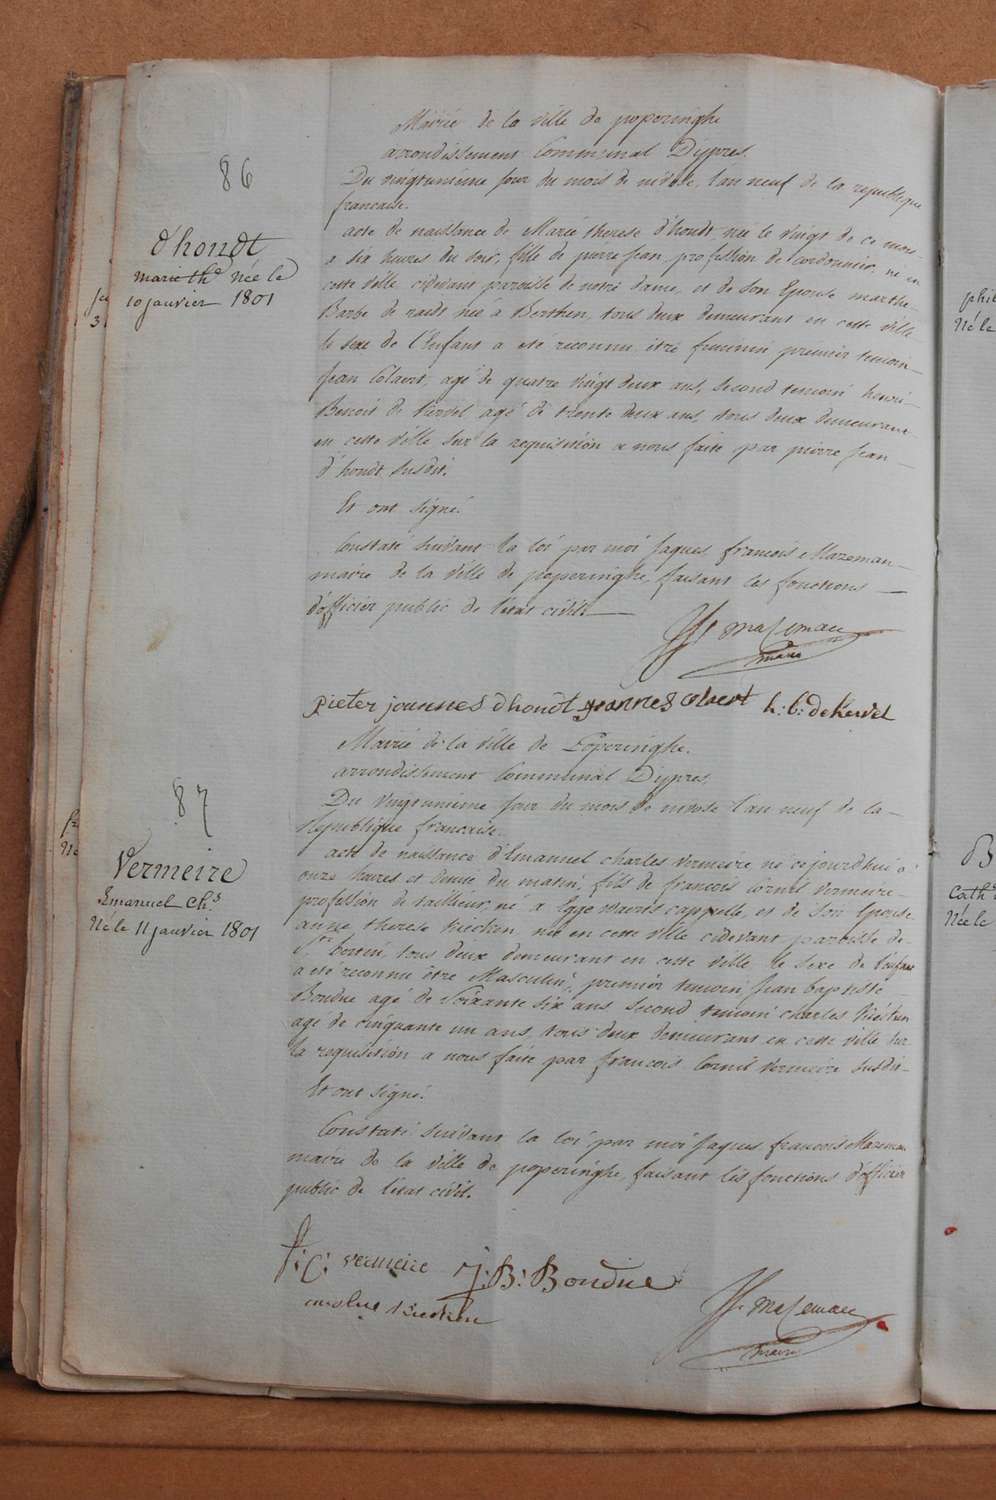 86
d'hondt
marie th.e Née le
10 janvier 1801
Mairie de la ville de poperinghe
arrondissement Communal Dypres.
Du vingtunième jour du mois de nivose, l'an neuf de la republique
francaise.
acte de naissance de Marie therese d'hondt née le vingt de ce mois
a six heures du soir, fille de pierre jean profession de cordonnier, né en
cette ville cidevant paroisse de notre dame, et de son Epouse marthe
Barbe de raedt née a Berthen, tous deux demeurant en cette ville
le sexe de l'enfant a eté reconnu etre feminin premier temoin
Jean Colaert, agé de quatre vingt deux ans, second temoin henri
Benoit de kervel agé de trente deux ans, tous deux demeurant
en cette ville sur la requisition a nous faite par pierre jean
d'hondt susdit.
Et ont signé.
Constaté suivant la loi par moi Jaques francois Mazeman
maire de la ville de poperinghe, faisant les fonctions
d'officier public de l'etat civil.
JF mazeman
maire
pieter joannes dhondt joannes Colaert h: b: de kervel
87
Vermeire
Emanuel Ch.s
Né le 11 janvier 1801
Mairie de la ville de Poperinghe.
arrondissement Communal Dypres.
Du vingtunieme jour du mois de nivose l'an neuf de la
Republique francaise.
acte de naissance d'Emanuel charles vermeire né cejourdhui a
onze heures et demie du matin, fils de francois Cornil vermeire
profession de tailleur, né a Egge waerts cappelle, et de son Epouse
anne therese kieken née en cette ville cidevant paroisse de
St. bertin, tous deux demeurant en cette ville le sexe de l'enfant
a eté reconnu être Masculin, premier temoin jean baptiste
Bondue agé de soixante six ans second temoin charles
agé de cinquante un ans, tous deux demeurant en cette ville sur
la requisition a nous faite par francois Cornil vermeire susdit
Et ont signé.
Constaté suivant la loi par moi Jaques francois Mazeman
maire de la ville de poperinghe, faisant les fonctions d'officier
public de l'etat civil.
f: C: vermeire J: B: Bondue
JF mazeman
maire
phil
Né le
B
Cath
Née le